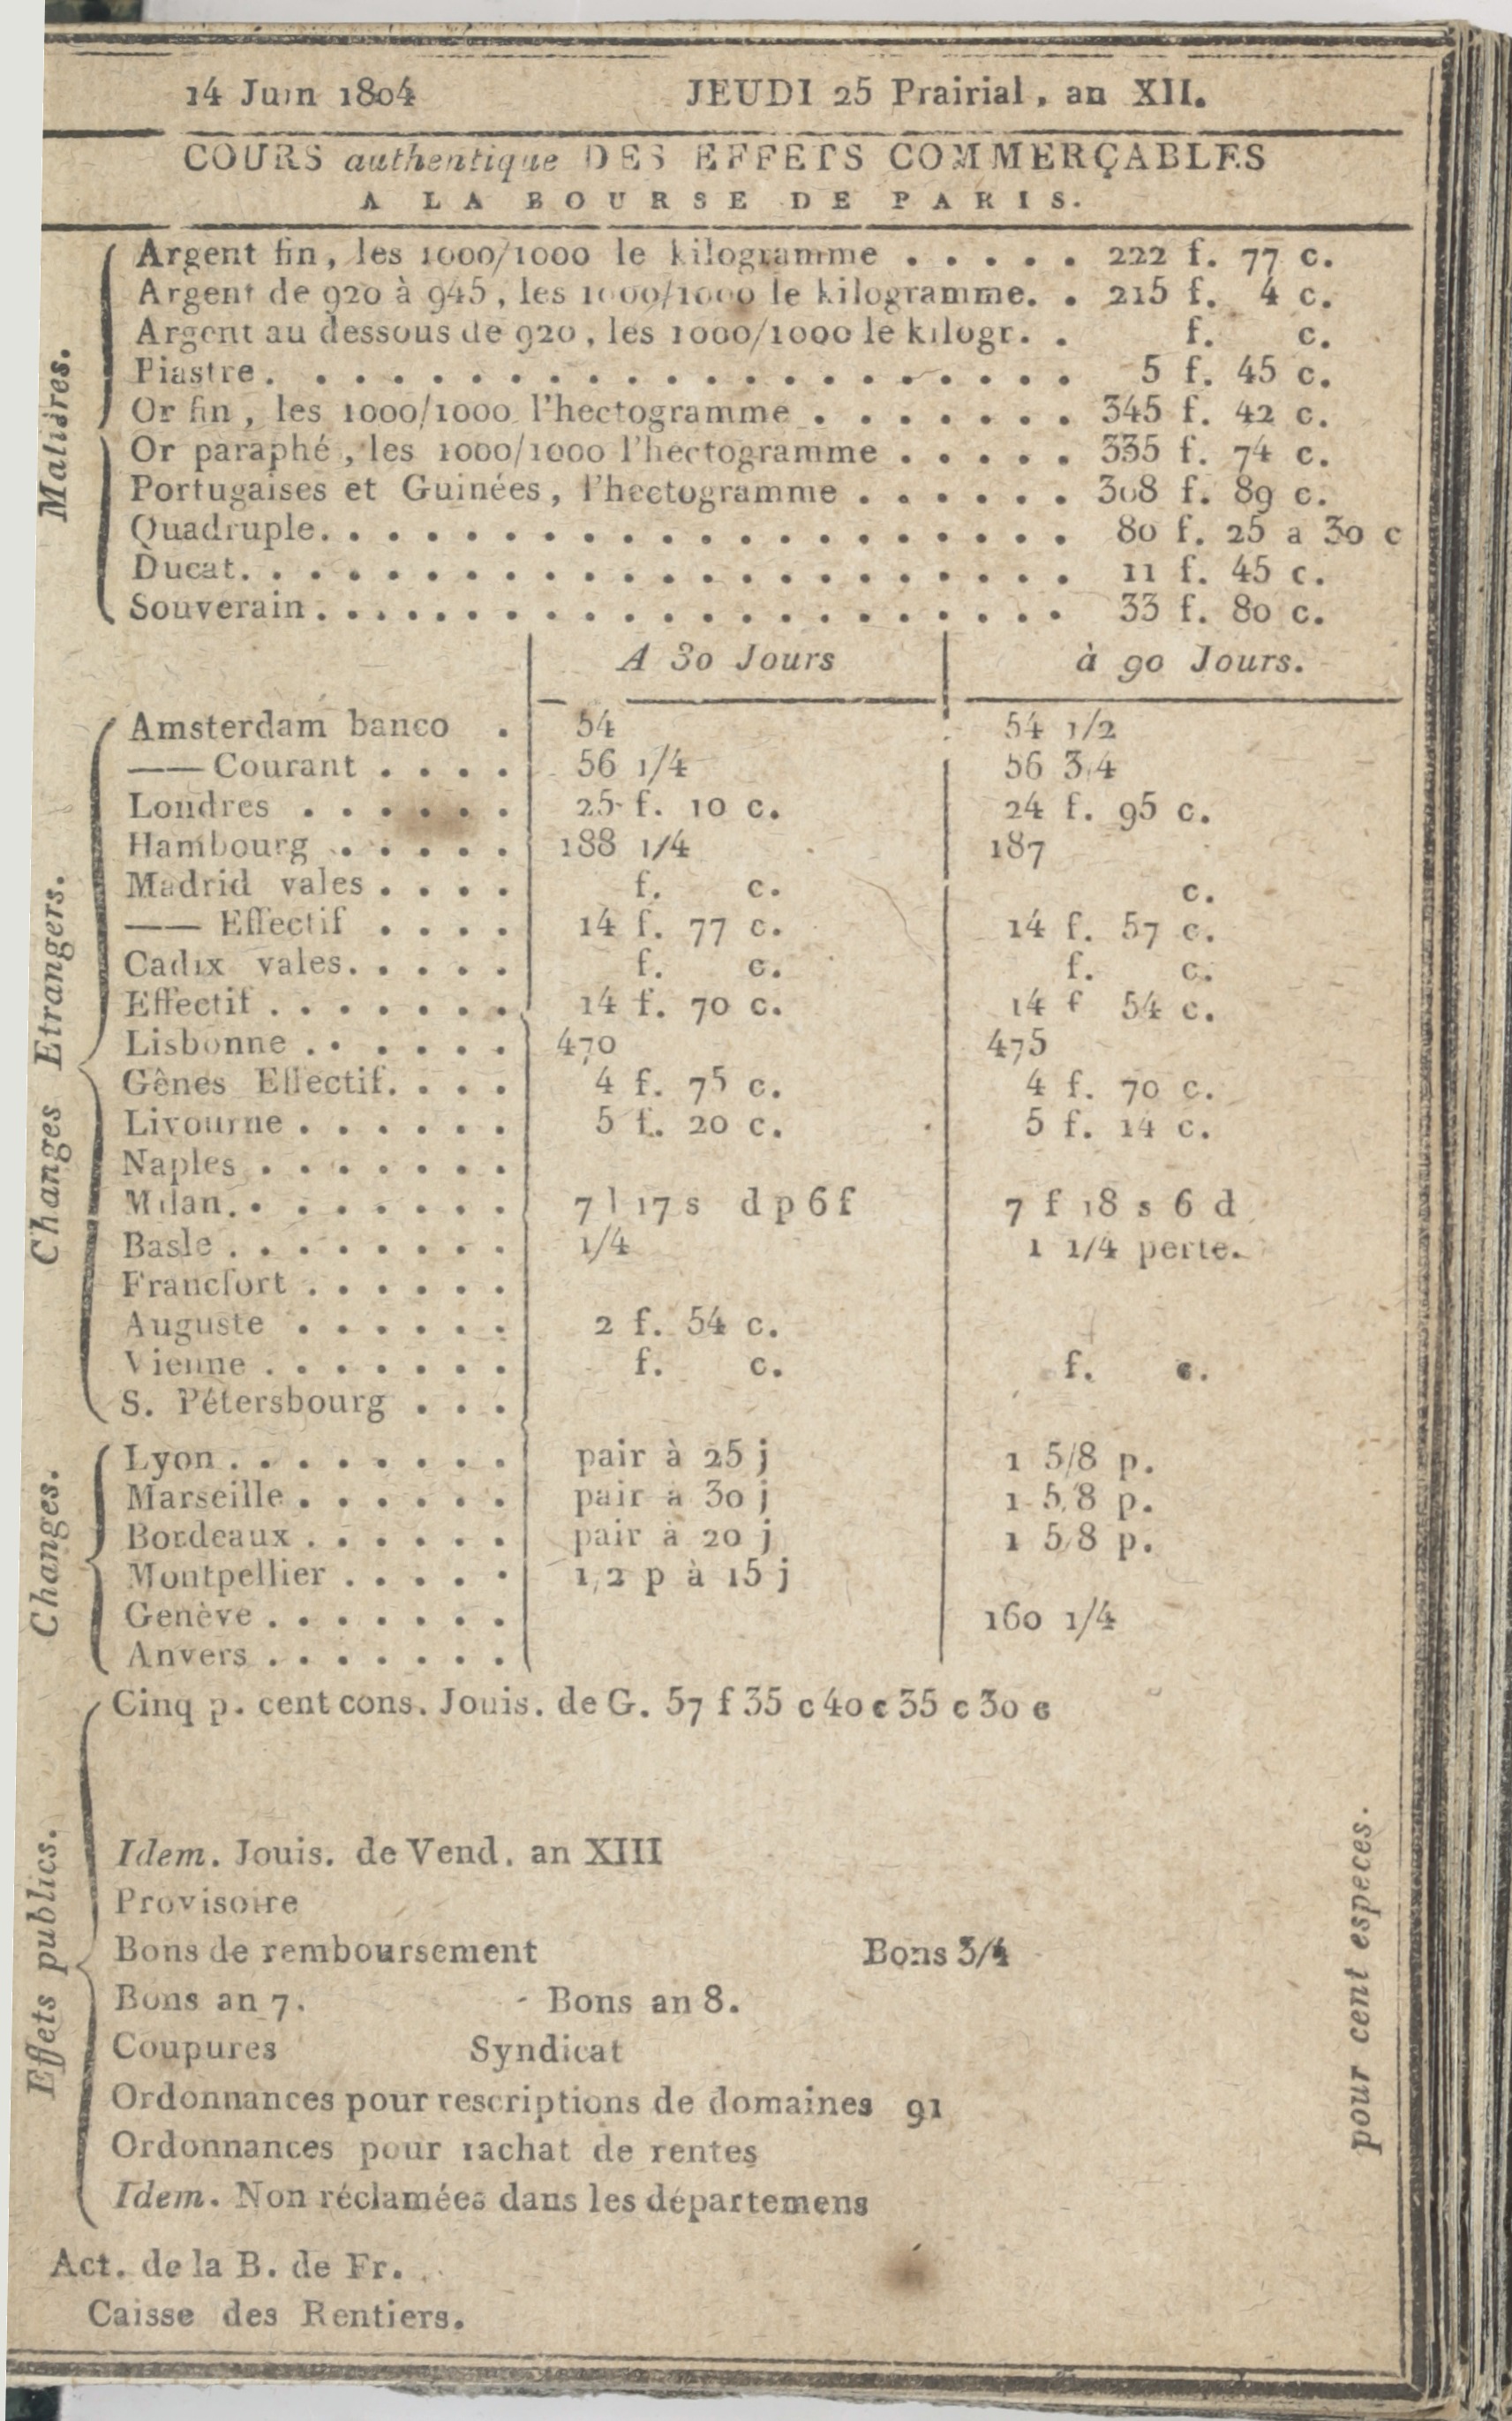 14 Juin 1804 JEUDI 25 Prairial, an XII.
COURS authentique DES EFFETS COMMERÇABLES
A LA BOURSE DE PARIS.
Matières.
Argent fin, les 1000/1000 le kilogramme . . . . . 222 f. 77 c.
Argent de 920 à 945, les 1000/1000 le kilogramme. . 215 f. 4 c.
Argent au dessous de 920, les 1000/1000 le kilogr. . f. c.
Piastre. . . . . . . . . . . . . . . . . . . . . 5 f. 45 c.
Or fin, les 1000/1000 l'hectogramme . . . . . . . 345 f. 42 c.
Or paraphé, les 1000/1000 l'hectogramme . . . . . 335 f. 74 c.
Portugaises et Guinées, l'hectogramme . . . . . . 308 f. 89 c.
Quadruple. . . . . . . . . . . . . . . . . . . . 80 f. 25 a 30 c
Ducat. . . . . . . . . . . . . . . . . . . . . . 11 f. 45 c.
Souverain . . . . . . . . . . . . . . . . . . . . 33 f. 80 c.
A 30 Jours à 90 Jours.
Changes Etrangers.
Amsterdam banco . 54 54 1/2
—— Courant . . . . 56 1/4 56 3/4
Londres . . . . . . 25 f. 10 c. 24 f. 95 c.
Hambourg . . . . . 188 1/4 187
Madrid vales . . . . f. c. c.
—— Effectif . . . . 14 f. 77 c. 14 f. 57 c.
Cadix vales. . . . . f. c. f. c.
Effectif . . . . . . . 14 f. 70 c. 14 f 54 c.
Lisbonne . . . . . . 470 475
Gênes Effectif. . . . 4 f. 75 c. 4 f. 70 c.
Livourne . . . . . . 5 f. 20 c. 5 f. 14 c.
Naples . . . . . . .
Milan. . . . . . . . 7 l 17 s d p 6 f 7 f 18 s 6 d
Basle . . . . . . . . 1/4 1 1/4 perte.
Francfort . . . . . .
Auguste . . . . . . 2 f. 54 c.
Vienne . . . . . . . f. c. f. c.
S. Pétersbourg . . .
Changes.
Lyon . . . . . . . . pair à 25 j 1 5/8 p.
Marseille . . . . . . pair à 30 j 1 5/8 p.
Bordeaux . . . . . . pair à 20 j 1 5/8 p.
Montpellier . . . . . 1/2 p à 15 j
Genève . . . . . . . 160 1/4
Anvers . . . . . . .
Effets publics.
Cinq p. cent cons. Jouis. de G. 57 f 35 c 40 c 35 c 30 c
Idem. Jouis. de Vend. an XIII
Provisoire
Bons de remboursement Bons 3/4
Bons an 7. Bons an 8.
Coupures Syndicat
Ordonnances pour rescriptions de domaines 91
Ordonnances pour rachat de rentes
Idem. Non réclamées dans les départemens
pour cent especes.
Act. de la B. de Fr.
Caisse des Rentiers.